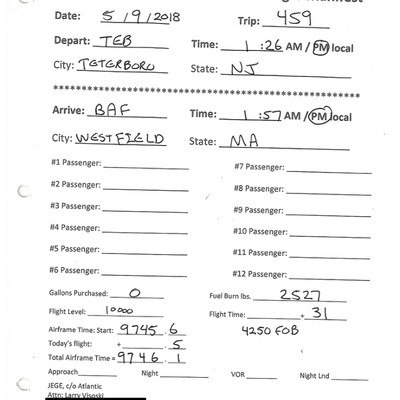 Date: 5/9/2018 Trip: 459
Depart: TEB Time: 1:26 AM / PM local
City: TETERBORO State: NJ
****************************************************
Arrive: BAF Time: 1:57 AM / PM local
City: WESTFIELD State: MA
#1 Passenger: #7 Passenger:
#2 Passenger: #8 Passenger:
#3 Passenger: #9 Passenger:
#4 Passenger: #10 Passenger:
#5 Passenger: #11 Passenger:
#6 Passenger: #12 Passenger:
Gallons Purchased: 0 Fuel Burn lbs. 2527
Flight Level: 10000 Flight Time: .31
Airframe Time: Start: 9745.6 4250 FOB
Today's flight: + .5
Total Airframe Time = 9746.1
Approach Night VOR Night Lnd
JEGE, c/o Atlantic
Attn: Larry Visoski